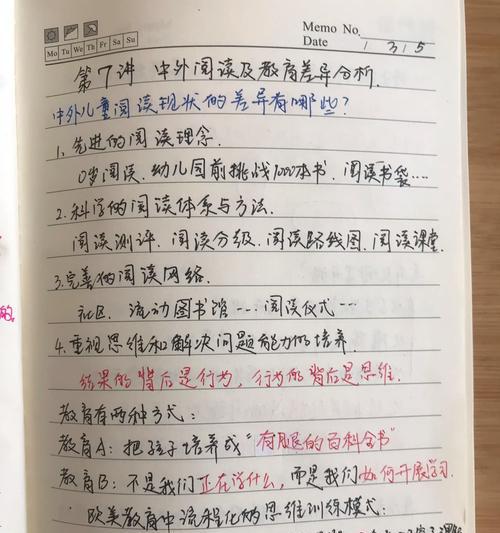 Memo No.
Mo Tu We Th Fr Sa Su
Date 1 3 5
第7讲 中外阅读及教育差异分析.
中外儿童阅读现状的差异有哪些?
1. 先进的阅读理念.
0岁阅读. 幼儿园前挑战1000本书. 阅读书袋....
2. 科学的阅读体系与方法.
阅读测评. 阅读分级. 阅读路线图. 阅读课堂.
3. 完善的阅读网络.
社区. 流动图书馆---. 阅读仪式---
4. 重视思维和解决问题能力的培养.
结果的背后是行为, 行为的背后是思维.
教育有两种方式:
教育A: 把孩子培养成"有腿的百科全书"
教育B: 不是我们正在学什么, 而是我们如何开展学习.
欧美教育中流程化的思维训练模式:
的